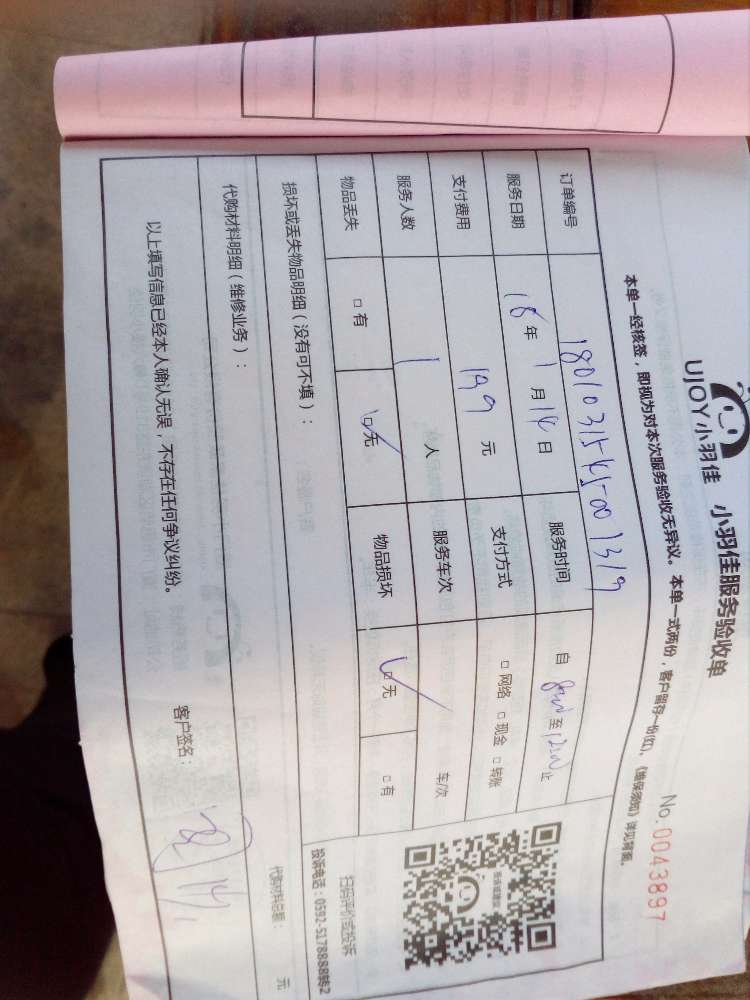 UJOY小羽佳 小羽佳服务验收单
No.0043897
本单一经核签，即视为对本次服务验收无异议。本单一式两份，客户留存一份(红)，《维保须知》详见背面。
订单编号
服务日期 18年 1月 14日 服务时间 自 至 止
支付费用 199 元 支付方式 □网络 □现金 □转账
服务人数 1 人 服务车次 车/次
物品丢失 □有 □无 物品损坏 □无 □有
损坏或丢失物品明细（没有可不填）：
扫码评价或投诉
投诉电话：0592-5178888转2
代购材料明细（维修业务）：
代购材料总额： 元
以上填写信息已经本人确认无误，不存在任何争议纠纷。
客户签名：